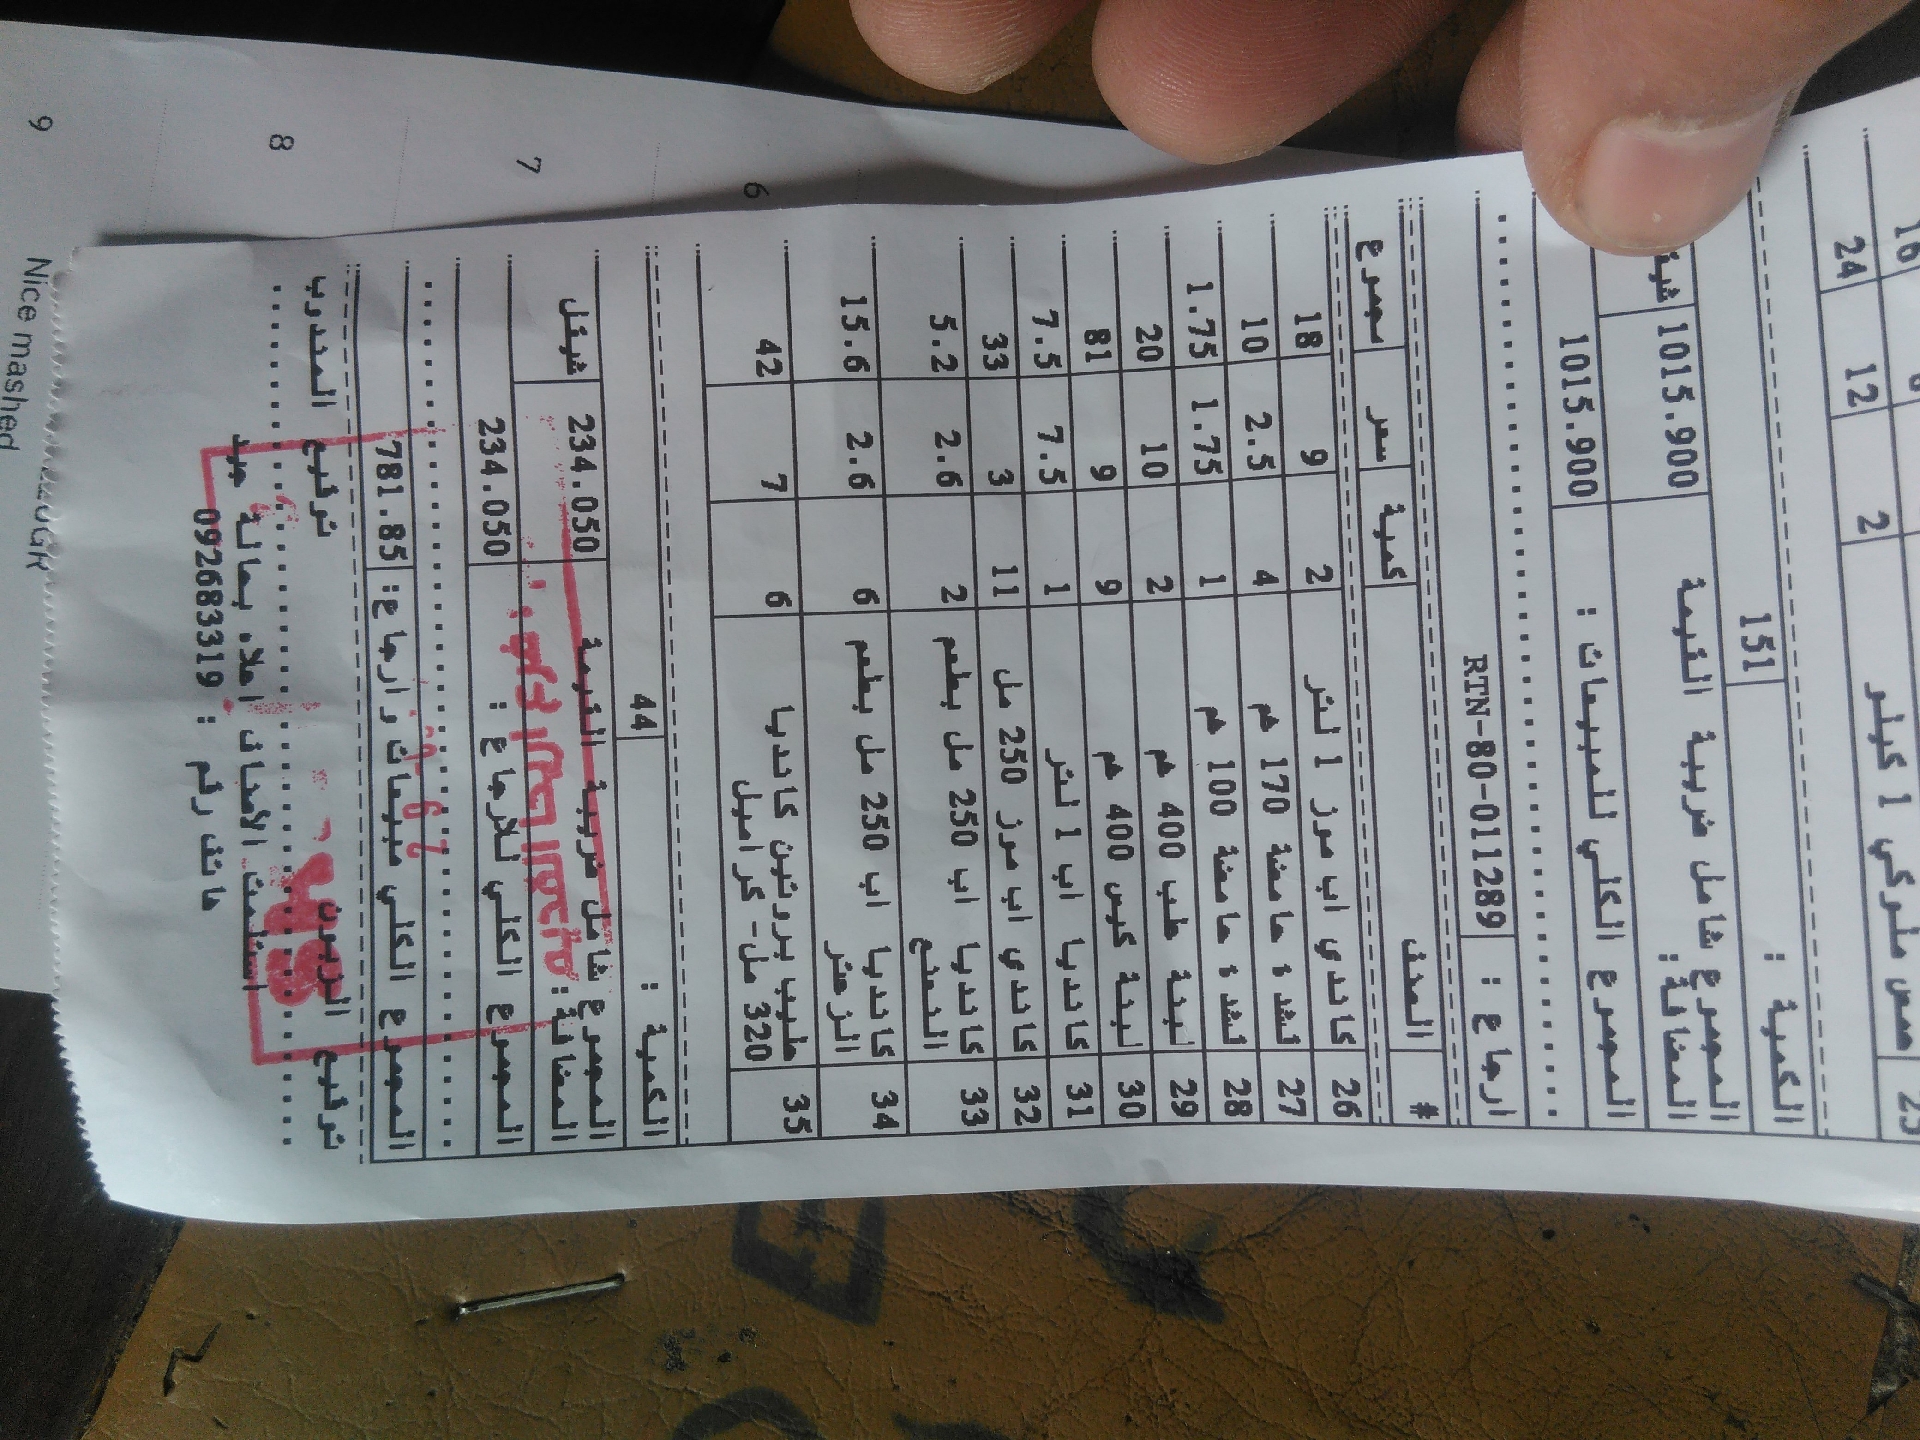 16
24 12 2 مس ملوكي 1 كيلو 25
151 الكمية :
شيقل 1015.900 المجموع شامل ضريبة القيمة المضافة :
1015.900 المجموع الكلي للمبيعات :
RTN-80-011289 ارجاع :
مجموع سعر كمية الصنف #
18 9 2 كاندي اب موز 1 لتر 26
10 2.5 4 لشدة حامضة 170 غم 27
1.75 1.75 1 لشدة حامضة 100 غم 28
20 10 2 لبنة علب 400 غم 29
81 9 9 لبنة كيس 400 غم 30
7.5 7.5 1 كانديا اب 1 لتر 31
33 3 11 كاندي اب موز 250 مل 32
5.2 2.6 2 كانديا اب 250 مل بطعم النعنع 33
15.6 2.6 6 كانديا اب 250 مل بطعم الزعتر 34
42 7 6 حليب بروتين كانديا 320 مل- كراميل 35
44 الكمية :
شيقل 234.050 المجموع شامل ضريبة القيمة المضافة :
234.050 المجموع الكلي للارجاع :
781.85 المجموع الكلي مبيعات و ارجاع :
توقيع الزبون توقيع المندوب
استلمت الأصناف اعلاه بحالة جيد
هاتف رقم : 092683319
6
7
8
9
Nice mashed